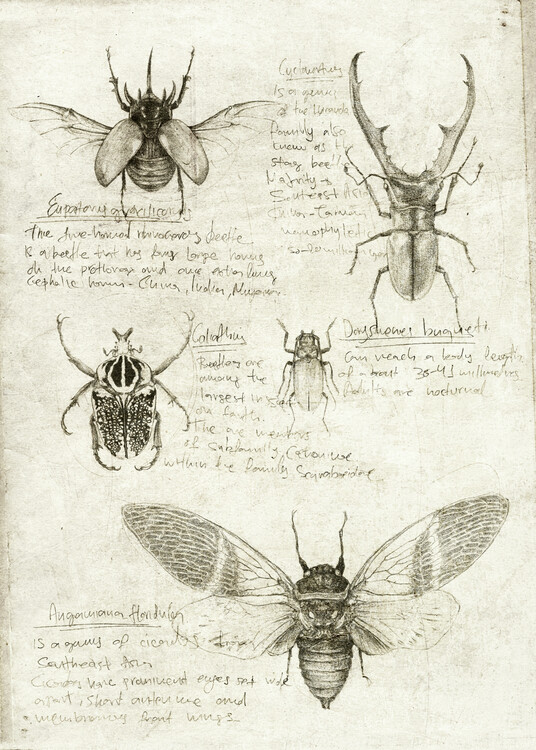 Eupatorus gracilicornis
The five-horned rhinoceros beetle
is a beetle that has four large horns
on the prothorax and one extra long
cephalic horn - China, India, Myanmar
Cyclommatus
is a genus
of the
Family also
known as the
stag beetle
Majority
Southeast Asia
monophyletic
Goliathus
Beetles are
among the
largest insect
on Earth.
The are members
of subfamily, Cetoniinae
within the family Scarabaeidae
Dorysthenes buqueti
Can reach a body length
of about 38-41 millimetres
Adults are nocturnal
Angamiana floridula
is a genus of cicadas from
Southeast Asia
Cicadas have prominent eyes set wide
apart, short antennae and
membranous front wings